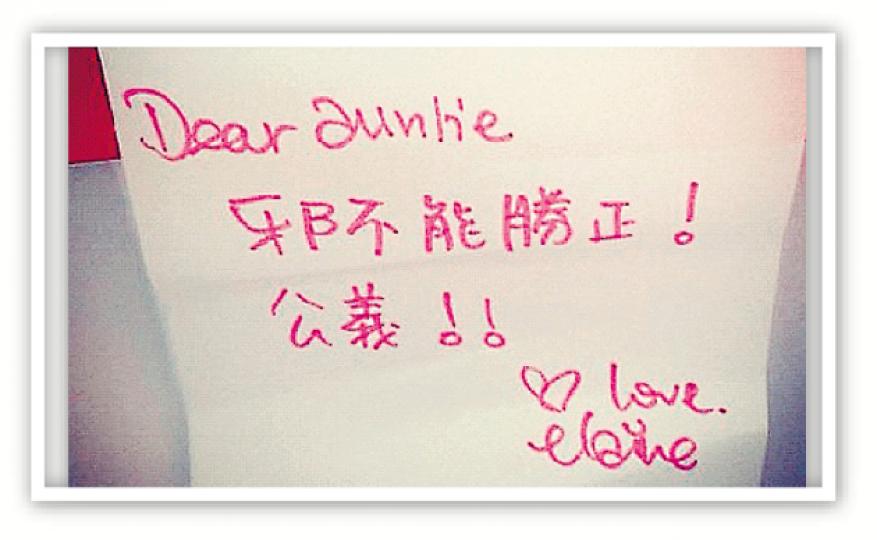 Dear auntie
邪不能勝正！
公義！！
♡ love.
elaine